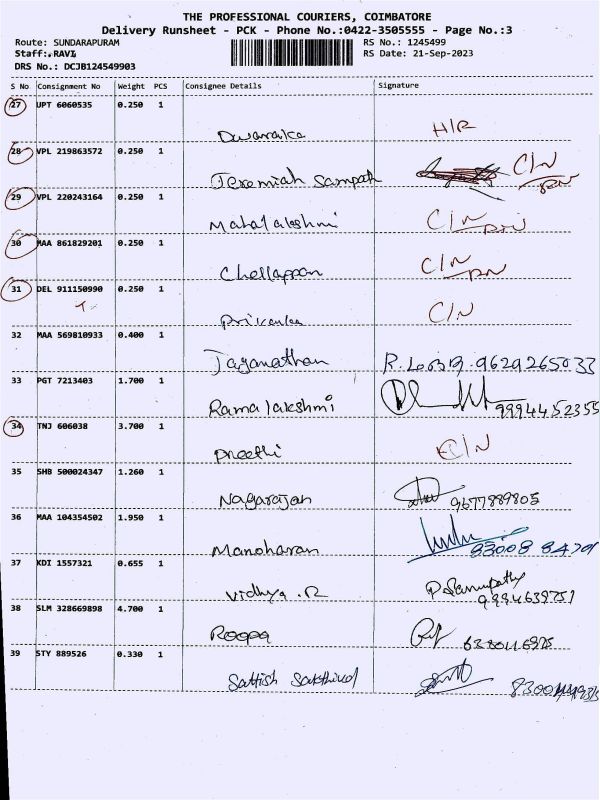 THE PROFESSIONAL COURIERS, COIMBATORE
Delivery Runsheet - PCK - Phone No.:0422-3505555 - Page No.:3
Route: SUNDARAPURAM RS No.: 1245499
Staff: RAVI RS Date: 21-Sep-2023
DRS No.: DCJB124549903
S No Consignment No Weight PCS Consignee Details Signature
27 UPT 6060535 0.250 1
Dwaraka H/R
28 VPL 219863572 0.250 1
Jeremiah Sampath C/N
29 VPL 220243164 0.250 1
Mahalakshmi C/N
30 MAA 861829201 0.250 1
Chellappan C/N
31 DEL 911150990 0.250 1
Priyanka C/N
32 MAA 569810933 0.400 1
Jaganathan 9629265033
33 PGT 7213403 1.700 1
Ramalakshmi 9994452355
34 TNJ 606038 3.700 1
Preethi C/N
35 SHB 500024347 1.260 1
Nagarajan 9677889805
36 MAA 104354502 1.950 1
Manoharan
37 KDI 1557321 0.655 1
Vidhya .R
9994639751
38 SLM 328669898 4.700 1
Roopa
39 STY 889526 0.330 1
Sattish Sakthivel